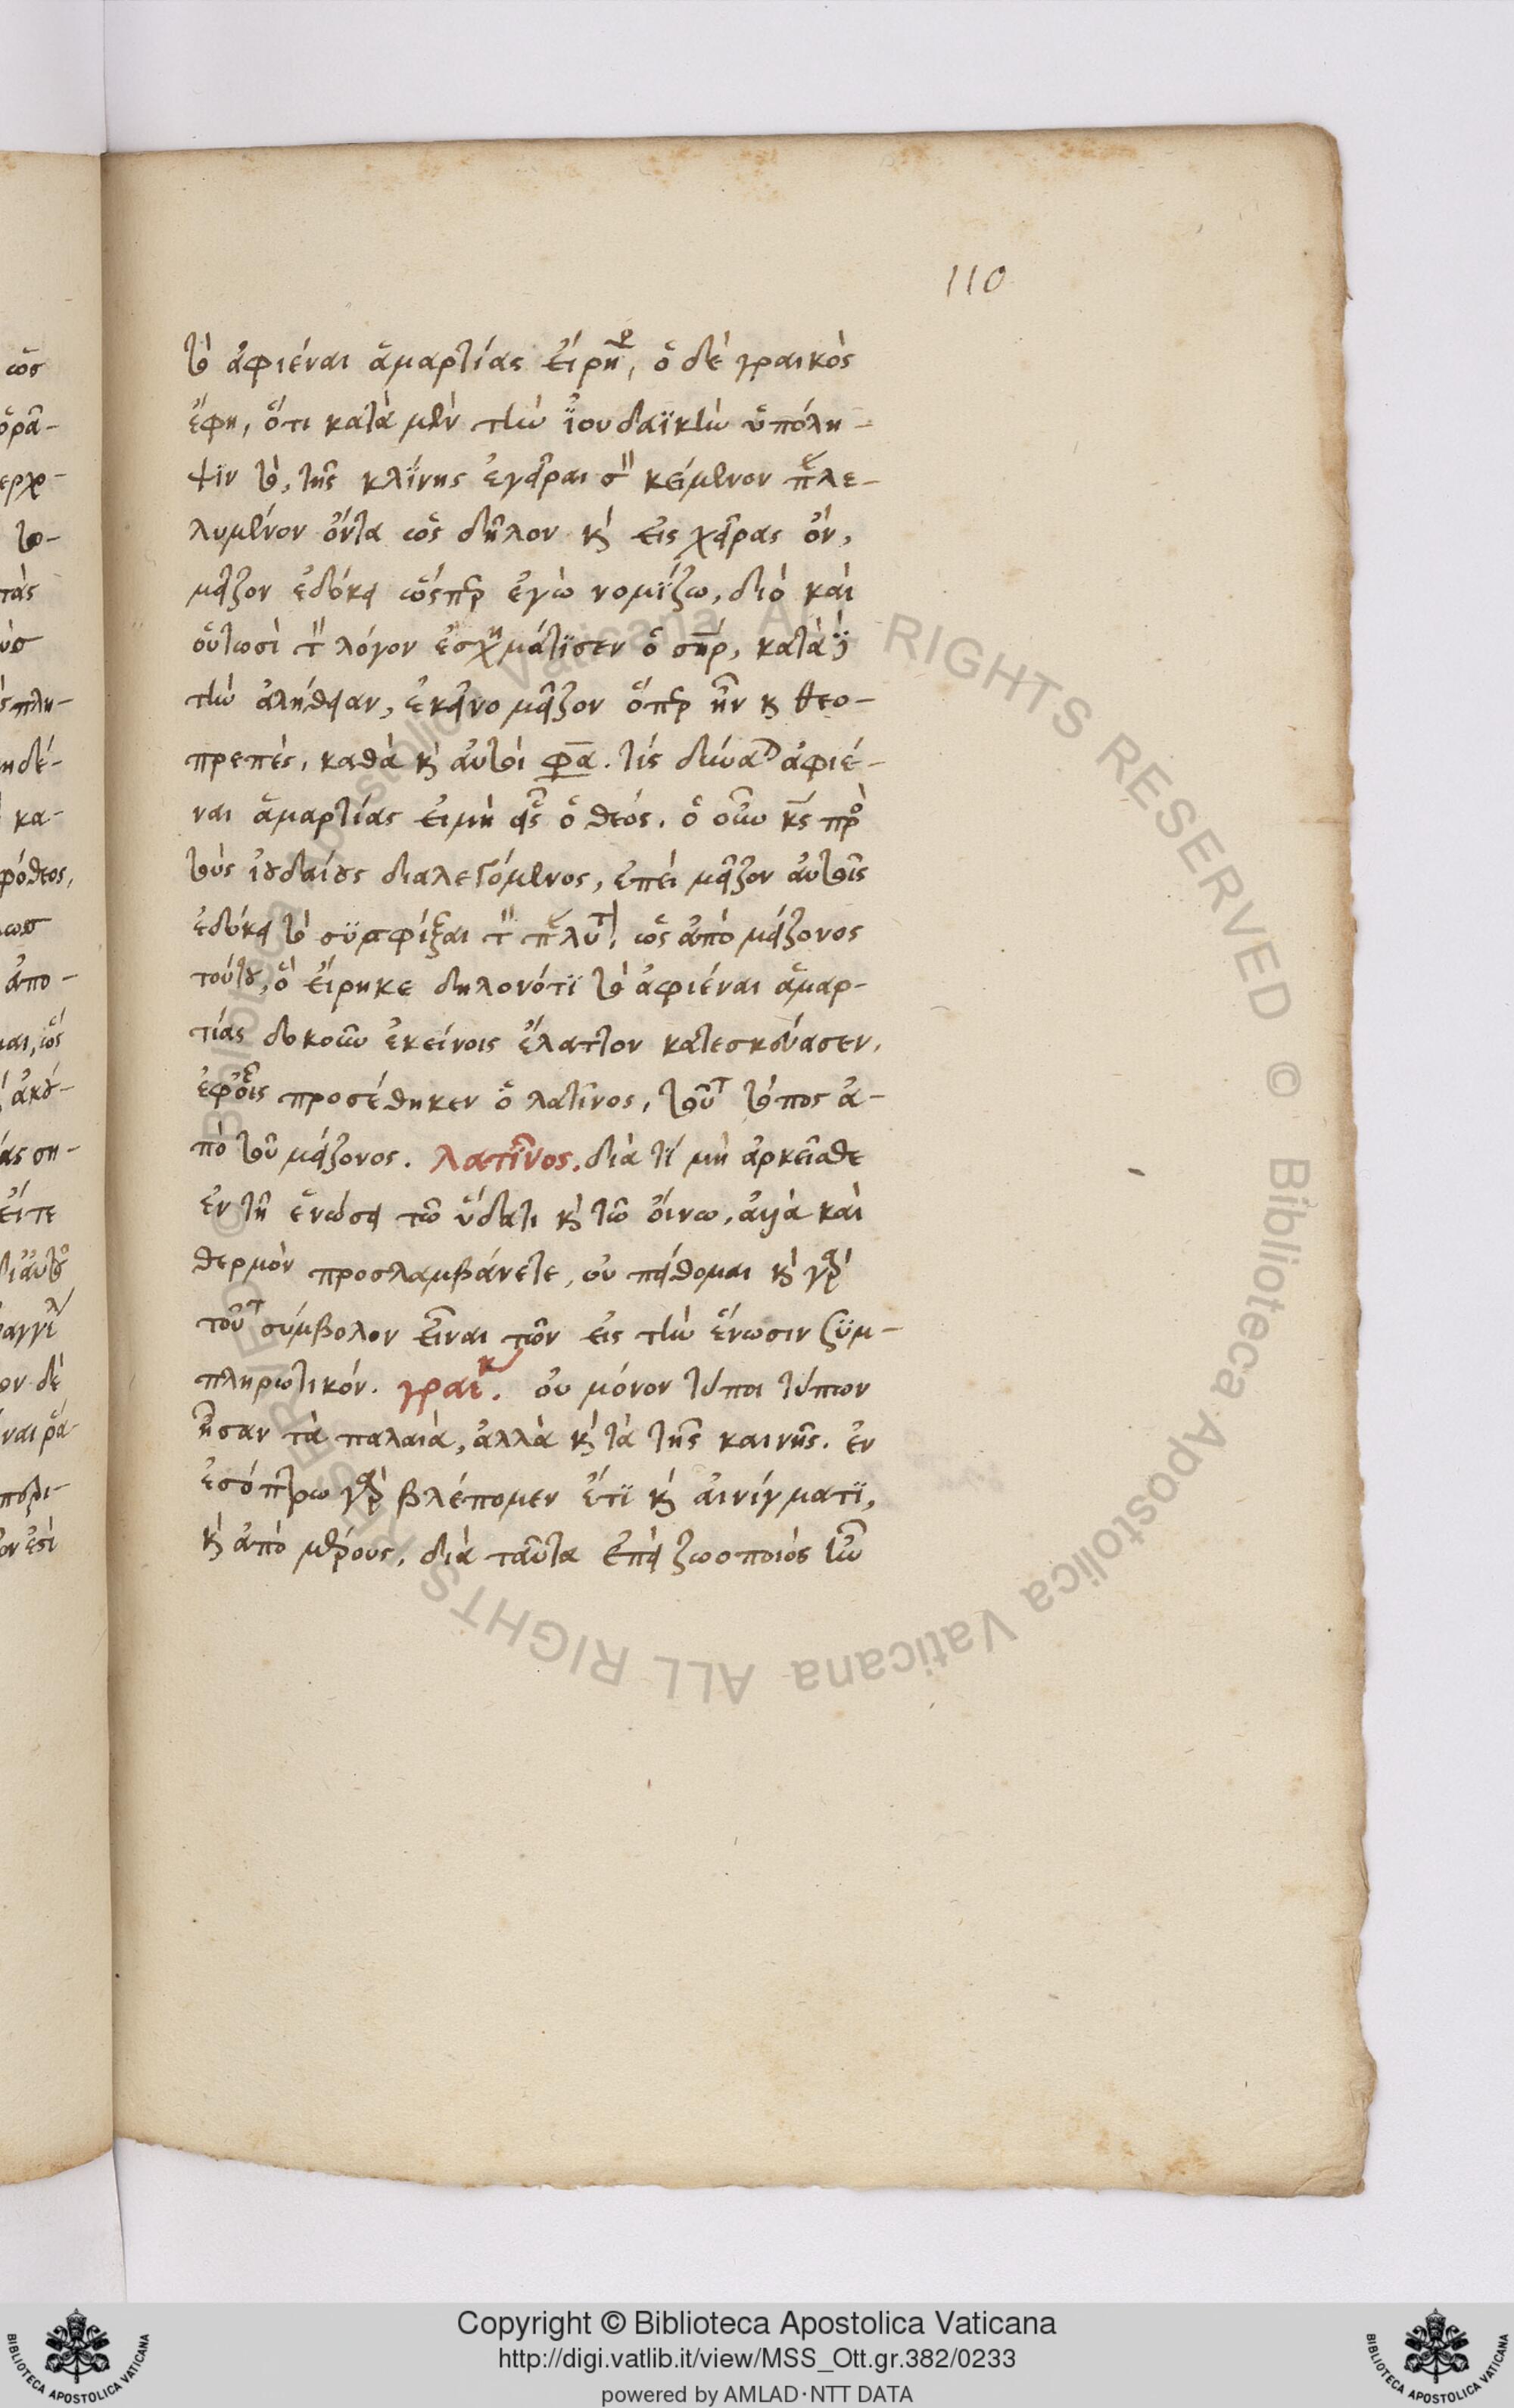 110
τὸ ἀφιέναι ἁμαρτίας εἴρη, ὁ δὲ γραικὸς
ἔφη, ὅτι κατὰ μὲν τὴν ἰουδαϊκὴν ὑπόλη-
ψιν τὸ, τῆς κλίνης ἐγεῖραι τὸν κείμενον παραλε-
λυμένον ὄντα ὡς δῆλον κ εἰς χεῖρας ὂν,
μεῖζον ἐδόκει ὥσπερ ἐγὼ νομίζω, διὸ καὶ
οὑτωσὶ τὸν λόγον ἐσχημάτισεν ὁ σηρ, κατὰ δὲ
τὴν ἀλήθειαν, ἐκεῖνο μεῖζον ὅπερ ἦν κ θεο-
πρεπὲς, καθὰ κ αὐτοὶ φα. τίς δύνα ἀφιέ-
ναι ἁμαρτίας εἰμὴ εἷς ὁ θεός. ὁ οὖν κς πρὸ
τοὺς ἰουδαίους διαλεγόμενος, ἐπεὶ μεῖζον αὐτοῖς
ἐδόκει τὸ συσφίξαι τὸν παράλυτ, ὡς ἀπὸ μείζονος
τούτου, ὃ εἴρηκε δηλονότι τὸ ἀφιέναι ἁμαρ-
τίας δοκοῦν ἐκείνοις ἔλαττον κατεσκεύασεν,
ἐφοῖς προσέθηκεν ὁ λατῖνος, τοῦτ τόπος ἀ-
πὸ τοῦ μείζονος. λατῖνος. διὰ τί μὴ ἀρκεῖσθε
ἐν τῇ ἑνώσει τῶ ὕδατι κ τῶ οἴνω, ἀλλὰ καὶ
θερμὸν προσλαμβάνετε, οὐ πείθομαι κ γὰρ
τοῦτ σύμβολον εἶναι τῶν εἰς τὴν ἕνωσιν ξυμ-
πληρωτικόν. γραικ. οὐ μόνον τύποι τύπων
ἦσαν τὰ παλαιὰ, ἀλλὰ κ τὰ τῆς καινῆς. ἐν
ἐσόπτρω γὰρ βλέπομεν ἔτι κ αἰνίγματι,
κ ἀπὸ μέρους, διὰ ταῦτα ἐπεὶ ζωοποιὸς ἦν
Copyright © Biblioteca Apostolica Vaticana
http://digi.vatlib.it/view/MSS_Ott.gr.382/0233
powered by AMLAD·NTT DATA